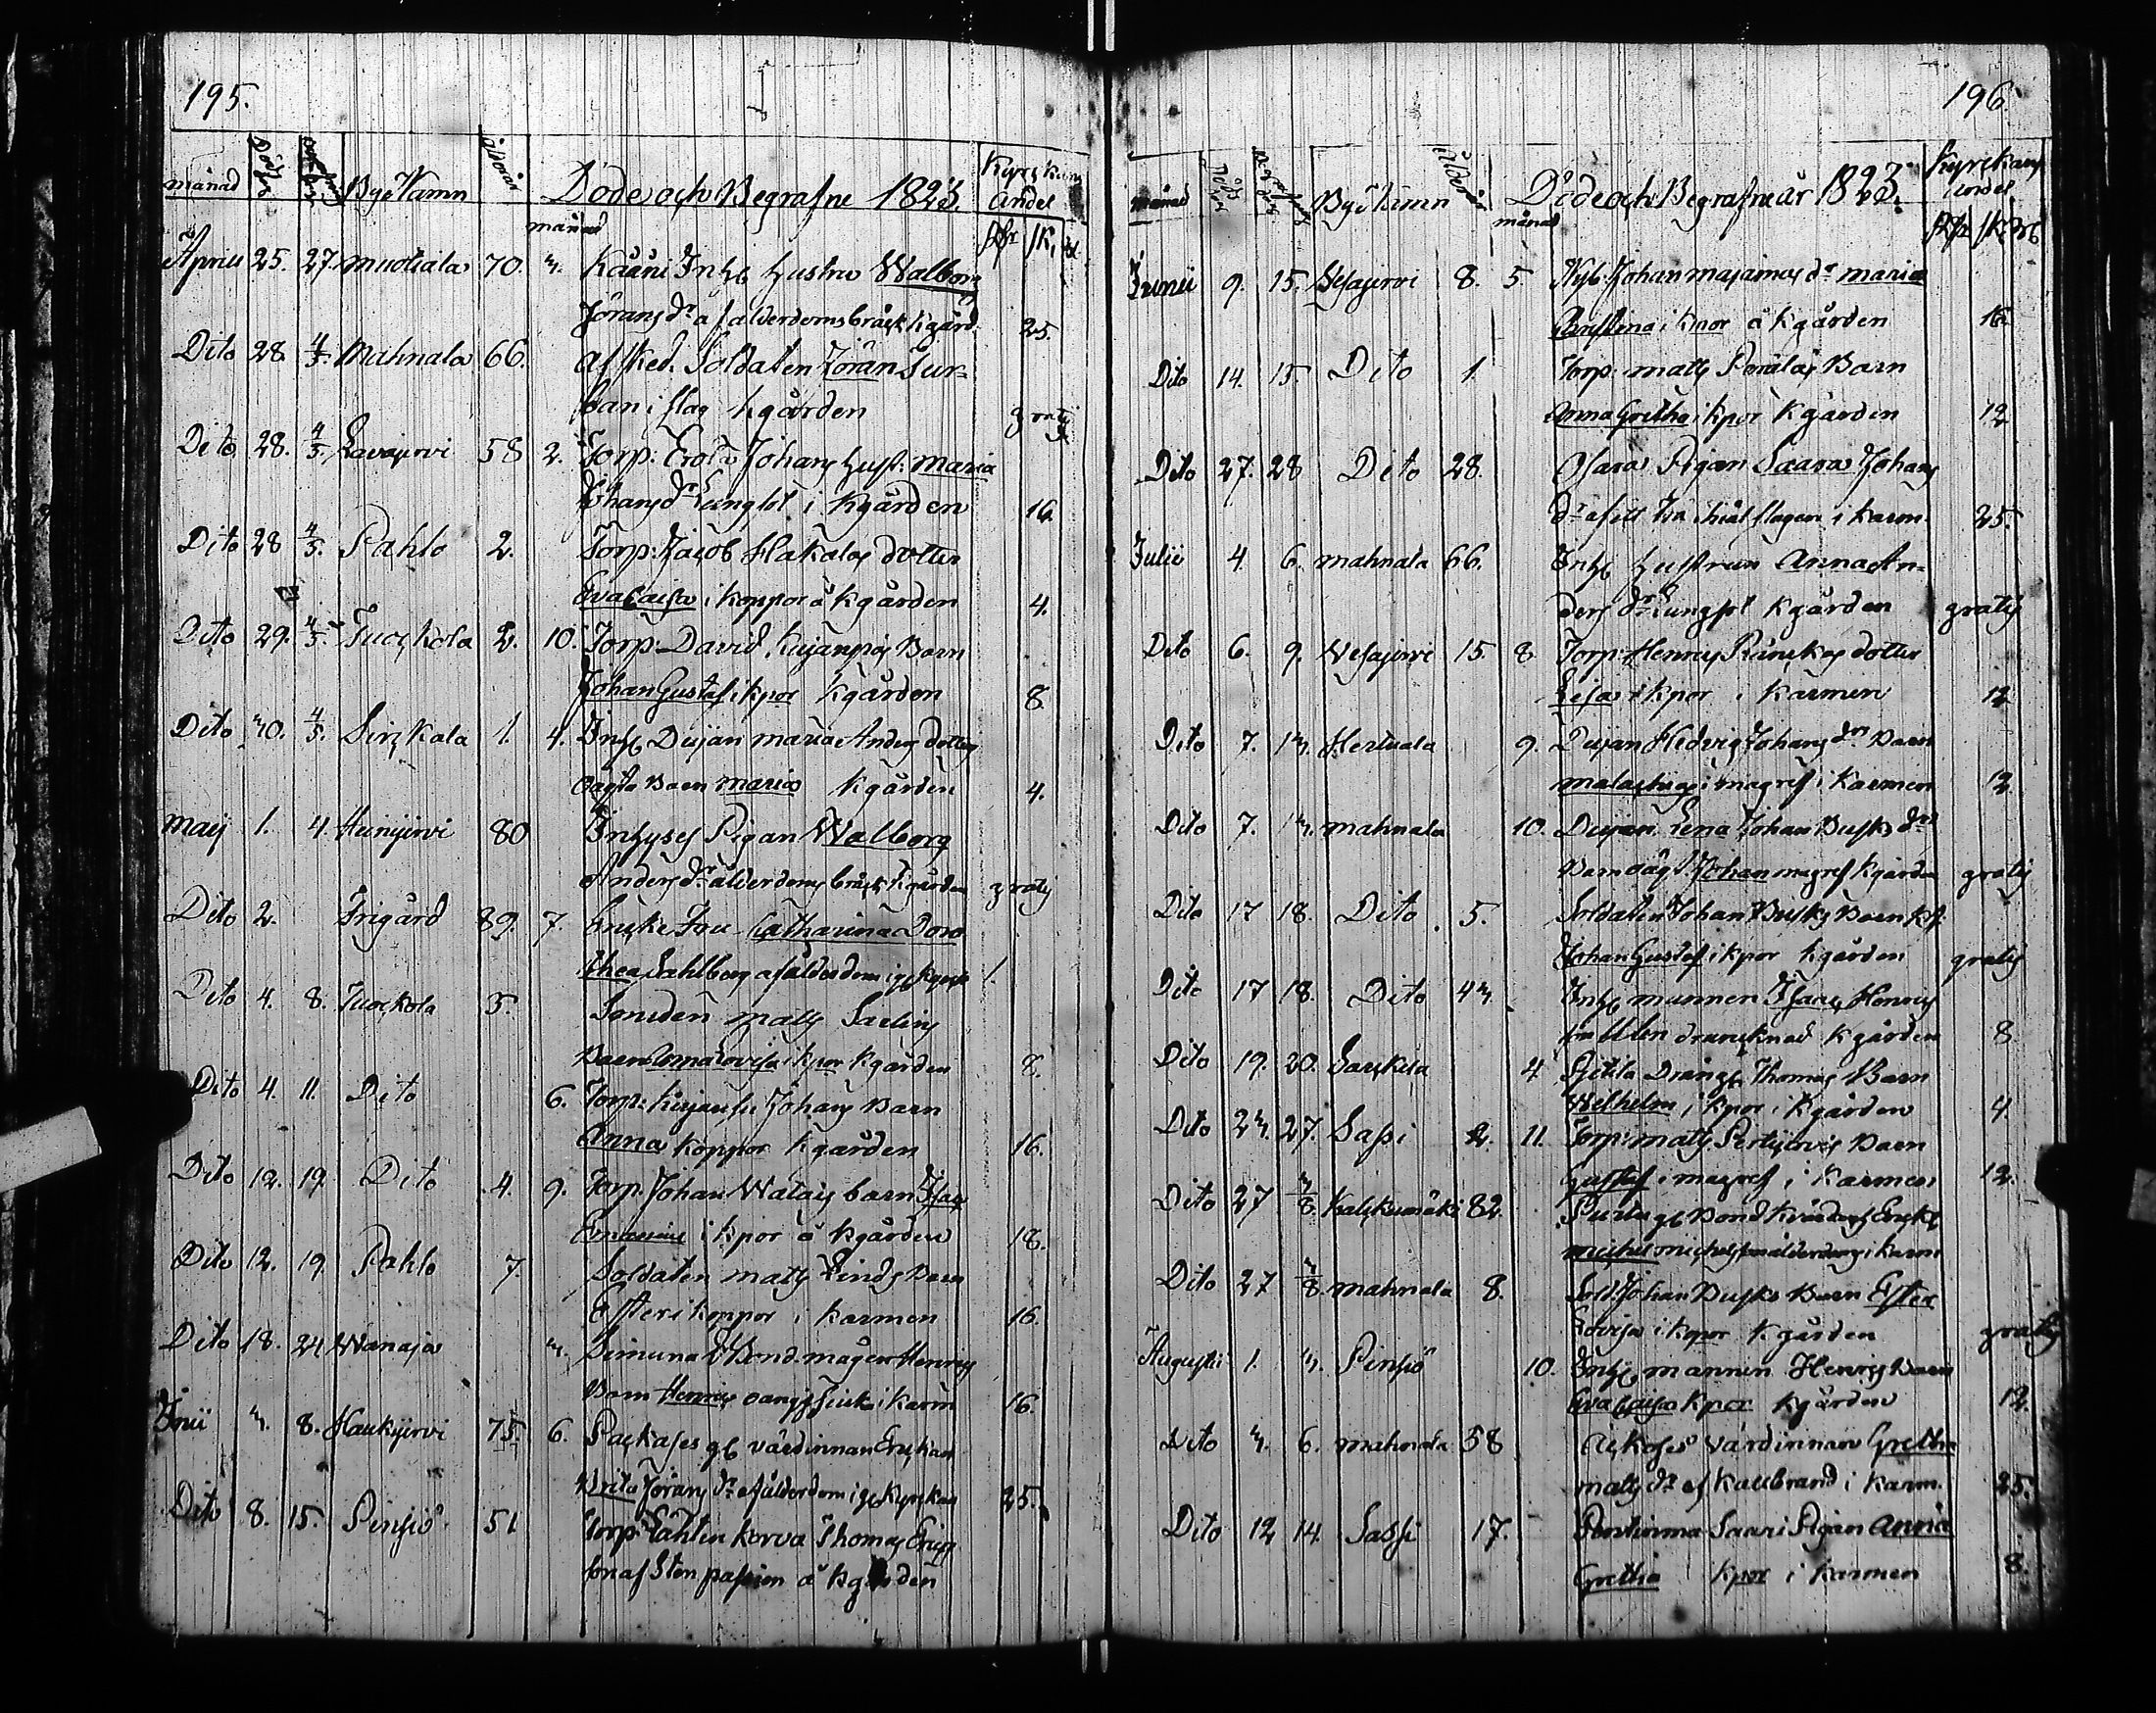 195.
månad Byö Namn ålder Döde och Begrafne 1823. Kyrckans Andel
månad
Aprill 25. 27. Muotiala 70. 3. Kääni Inhs hustru Walborg
Jöransdr af ålderdoms bräck Kgård. 25.
Dito 28 4/5. Mahnala 66. Afsked. Soldaten Jöran Sur=
ban i slag kgården gratis
Dito 28. 4/5. Lavajervi 58 2. Torp: Erola Johans hust: Maria
Johansdr Lungsot i Kgården 16.
Dito 28 4/5. Pahlo 2. Torp: Jacob Hakalas dotter
Eva Caisa i koppor å kgården 4.
Dito 29. 4/5 Tuockola 2. 10. Torp: David Kujanpäs Barn
Johan Gustaf i kpor Kgården 8
Dito 30. 4/5. Sirckala 1. 4. Inhs Pigan Maria Anders dotters
oägta Barn Maria Kgården 4.
Maij 1. 4. Heinijervi 80 Inhyses Pigan Walborg
Andersdr ålderdoms bräck Kgården gratis
Dito 2. Frigård 89. 7. Encke Fru Catharina Doro
thea Sahlberg af ålderdom i gl kyrk 1.
Dito 4. 8. Tuockola 5. Smeden Matts Saelins
Barn Ulrica Lovisa i kpor Kgården 8.
Dito 4. 11. Dito 6. Torp: Kujansu Johans Barn
Anna koppor Kgården 16.
Dito 12. 19. Dito 4. 9. Torp. Johan Watais barn Isac
Emanuel i kpor å kgården 18.
Dito 12. 19 Pahlo 7. Soldaten Matts Linds Barn
Ester i koppor i Karmen 16.
Dito 18. 24 Wanaja 3. Simuna Bond. mågen Henrics
Barn Henric oangf siuk i Karm 16.
Junii 3. 8. Haukijervi 75. 6. Packases gl värdinnan Enckan
Brita Jöransdr af ålderdom i gl Kyrckan 25.
Dito 8. 15. Pinsiö 51 Torp: Lähten korva Thomas Erics
son af Sten passion å kgården
196.
månad Byö Namn Ålder Döde och Begrafne år 1823. Kyrckans andel
månad
Junii 9. 15. Wesajervi 8. 5. Nyb: Johan Majaimas dr Maria
Christina i kpor å kgården 16.
Dito 14. 15. Dito 1. Torp: Matts Perälas Barn
Anna Gretha i kpor Kgården 12
Dito 27. 28 Dito 28. Ofara Pigan Saara Johans
dr i Karm. 25.
Julii 4. 6. Mahnala 66. Inhs hustrun Anna An=
ders dr Lungsot Kgården gratis
Dito 6. 9. Wesajervi 15. 8. Torp: Henrics dotter
Lisa i kpor i Karmen 12
Dito 7. 13. Hertuala 9. Pigan Hedvig Johans drs Barn
i magref i Karmen 12
Dito 7. 13. Mahnala 10. Pigan Lena Johan Busks drs
Barn oägt Johan magref Kgården gratis
Dito 17 18. Dito 5. Soldaten Johan Busks Barn
Johan Gustaf i kpor kgården gratis
Dito 17 18. Dito 43. Inhs mannen Isac Henrics
son Ulen druncknad Kgården 8
Dito 19. 20. Sarckila 4 Pietila Drängs Thomas Barn
Wilhelm i kpor i Kgården 4
Dito 23. 27. Sassi 2. 11. Torp: Matts Barn
Gustaf i magref i Karmen 12.
Dito 27 3/8 Kalckunmäki 82. gl Bond
Michel Michelsson ålderdoms i karm
Dito 27 3/8. Mahnala 8. Sold: Johan Busks Barn Ester
Lovisa i kpor Kgården gratis
Augustii 1. 3. Pinsiö 10. Inhs mannen Henrics Barn
Eva Caisa Kpor kgården 12
Dito 3. 6. Mahnala 58 värdinnan Gretha
Matts dr af Kallbrand i Karm. 25.
Dito 12 14. Sassi 17. Saari Pigan Anna
Gretha kpor i Karmen 8.